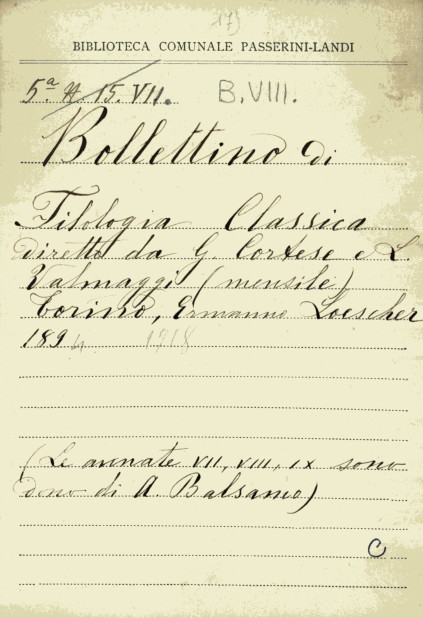 17)
BIBLIOTECA COMUNALE PASSERINI-LANDI
5.ª H. 15. VII.
B.VIII.
Bollettino di
Filologia Classica
diretto da G. Cortese e L.
Valmaggi (mensile)
Torino, Ermanno Loescher
1894 1918
(Le annate VII, VIII, IX sono
dono di A. Balsamo)
C